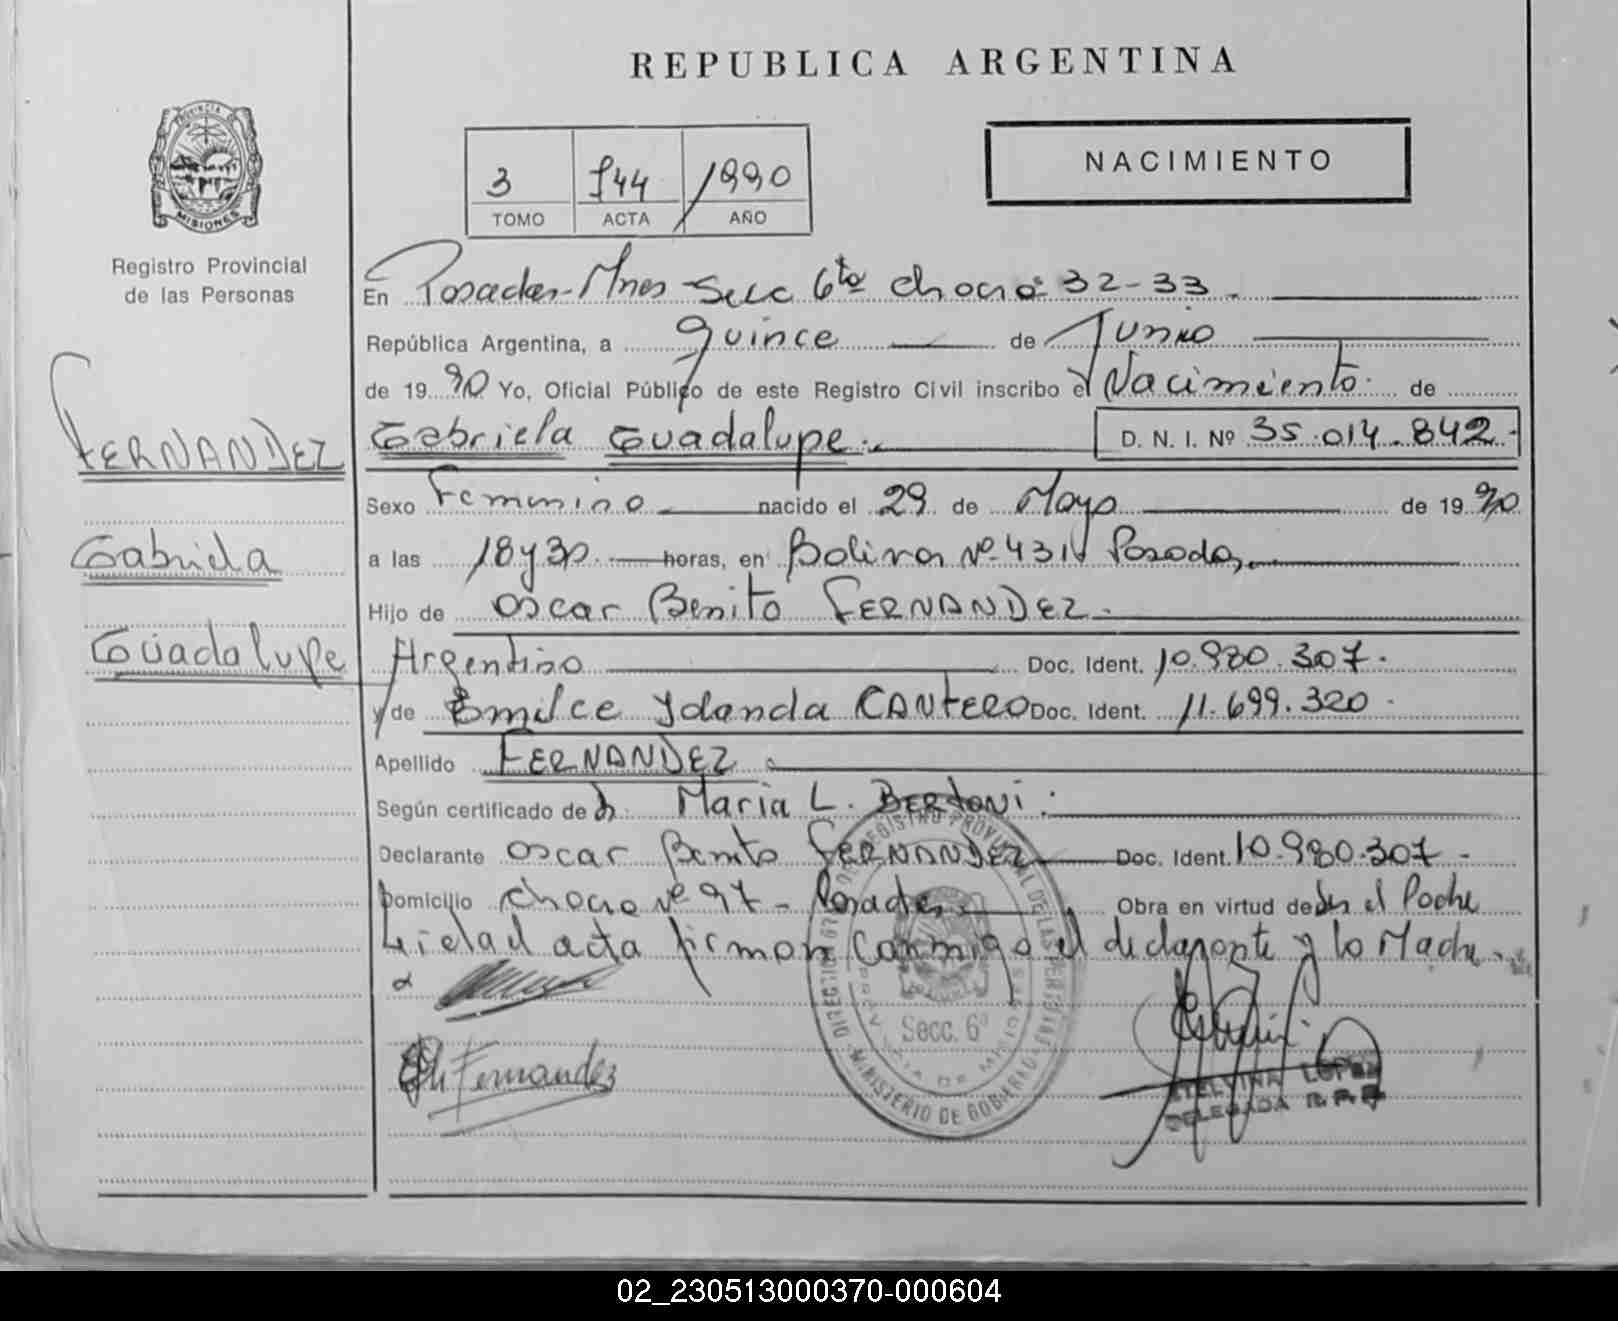 REPUBLICA ARGENTINA
PROVINCIA DE
MISIONES
Registro Provincial
de las Personas
3 544 1990
TOMO ACTA AÑO
NACIMIENTO
En Posadas - Mnes Secc 6ta Chaco 32-33
República Argentina, a quince de Junio
de 1990 Yo, Oficial Público de este Registro Civil inscribo el Nacimiento de
Gabriela Guadalupe D. N. I. Nº 35.014.842
FERNANDEZ
Gabriela
Guadalupe
Sexo Femenino nacido el 29 de Mayo de 1990
a las 18 y 30 horas, en Bolivar Nº 431 Posadas
Hijo de Oscar Benito FERNANDEZ
Argentino Doc. Ident. 10.980.307
y de Emilce Yolanda CANTERO Doc. Ident. 11.699.320
Apellido FERNANDEZ
Según certificado de Maria L. BERTONI
Declarante Oscar Benito FERNANDEZ Doc. Ident. 10.980.307
Domicilio Chaco Nº 97 - Posadas Obra en virtud de ser el Padre
Leida el acta firman conmigo el declarante y la Madre.
Fernandez
DIRECCION GRAL DE REGISTRO PROVINCIAL DE LAS PERSONAS
Secc. 6ª
PROVINCIA DE MISIONES
MINISTERIO DE GOBIERNO
ETELVINA LOPEZ
DELEGADA R.P.P.
02_230513000370-000604